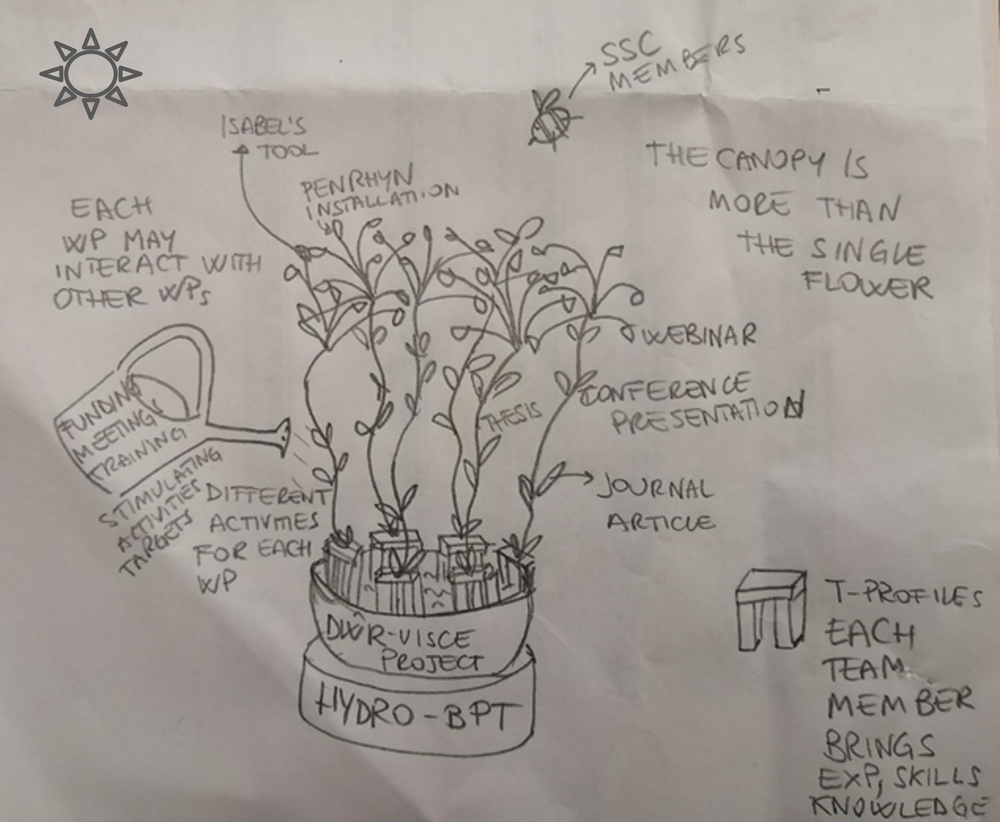 SSC
MEMBERS
ISABEL'S
TOOL
PENRHYN
INSTALLATION
THE CANOPY IS
MORE THAN
THE SINGLE
FLOWER
EACH
WP MAY
INTERACT WITH
OTHER WPs
WEBINAR
CONFERENCE
PRESENTATION
THESIS
FUNDING
MEETINGS
TRAINING
STIMULATING
ACTIVITIES
TARGETS
DIFFERENT
ACTIVITIES
FOR EACH
WP
JOURNAL
ARTICLE
DWR-UISCE
PROJECT
HYDRO-BPT
T-PROFILES
EACH
TEAM
MEMBER
BRINGS
EXP, SKILLS
KNOWLEDGE